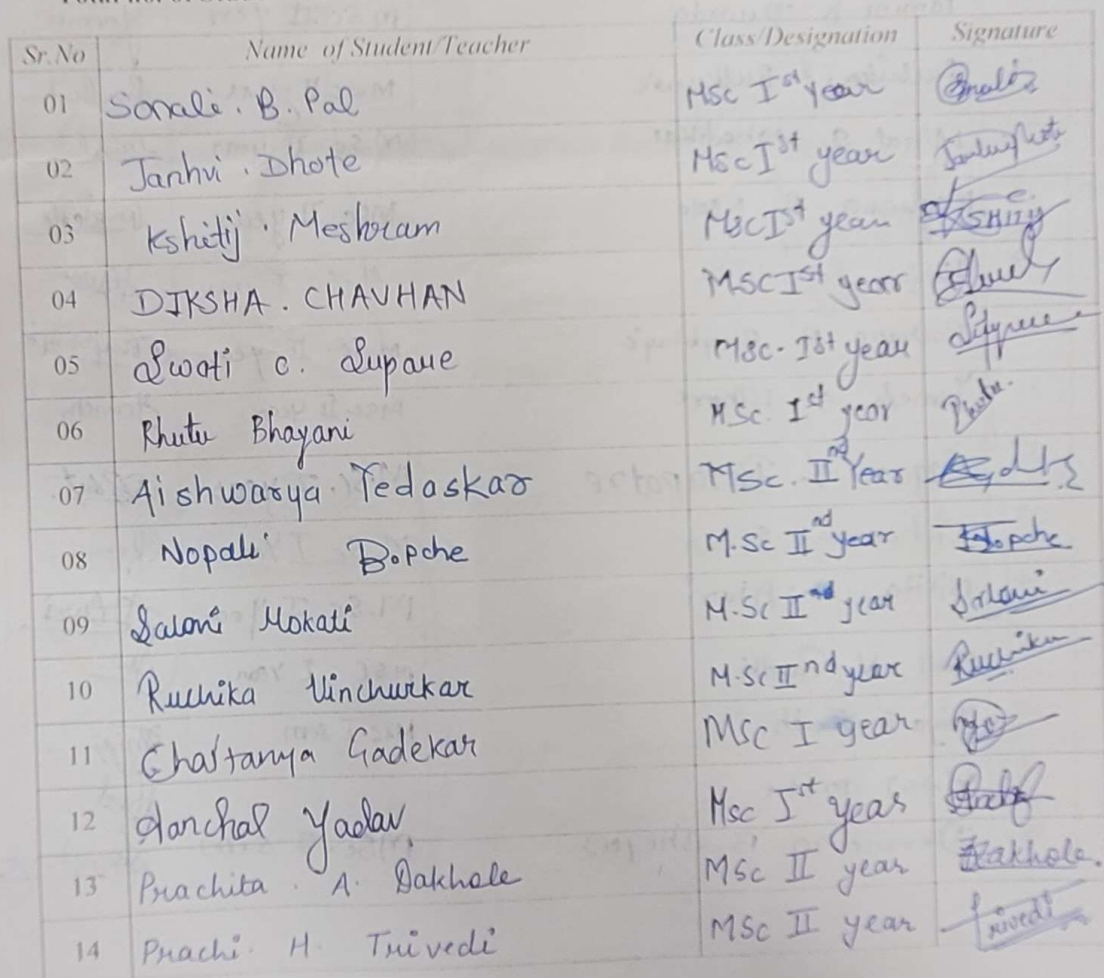 Sr.No Name of Student/Teacher Class/Designation Signature
01 Sonali. B. Pal MSc Ist year
02 Janhvi. Dhote MSc Ist year
03 Kshitij. Meshram MSc Ist year
04 DIKSHA. CHAVHAN MSC Ist year
05 Swati C. Supare MSc. Ist year
06 Rhutu Bhayani MSc. Ist year Rhutu.
07 Aishwarya Tedaskar MSc. IInd Year
08 Nopali Bopche M.Sc IInd year Bopche
09 Saloni Mokati M.Sc IInd year Saloni
10 Ruchika Vinchurkar M.Sc IInd year Ruchika
11 Chaitanya Gadekar MSc I year
12 Aanchal Yadav Msc Ist year
13 Prachita. A. Dakhole MSc II year Dakhole.
14 Prachi. H. Trivedi MSc II year Trivedi